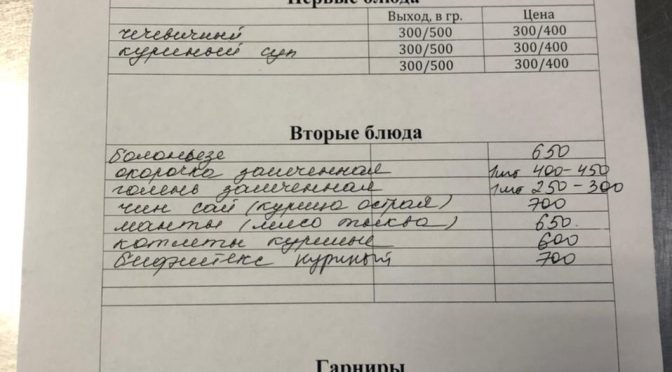 Первые блюда
Выход, в гр. Цена
чечевичный 300/500 300/400
куриный суп 300/500 300/400
300/500 300/400
Вторые блюда
болоньезе 650
окорочка запеченная 1шт 400-450
голень запеченная 1шт 250-300
чин сай (курица острая) 700
манты (мясо тыква) 650.
котлеты куриные 600
бифштекс куриный 700
Гарниры